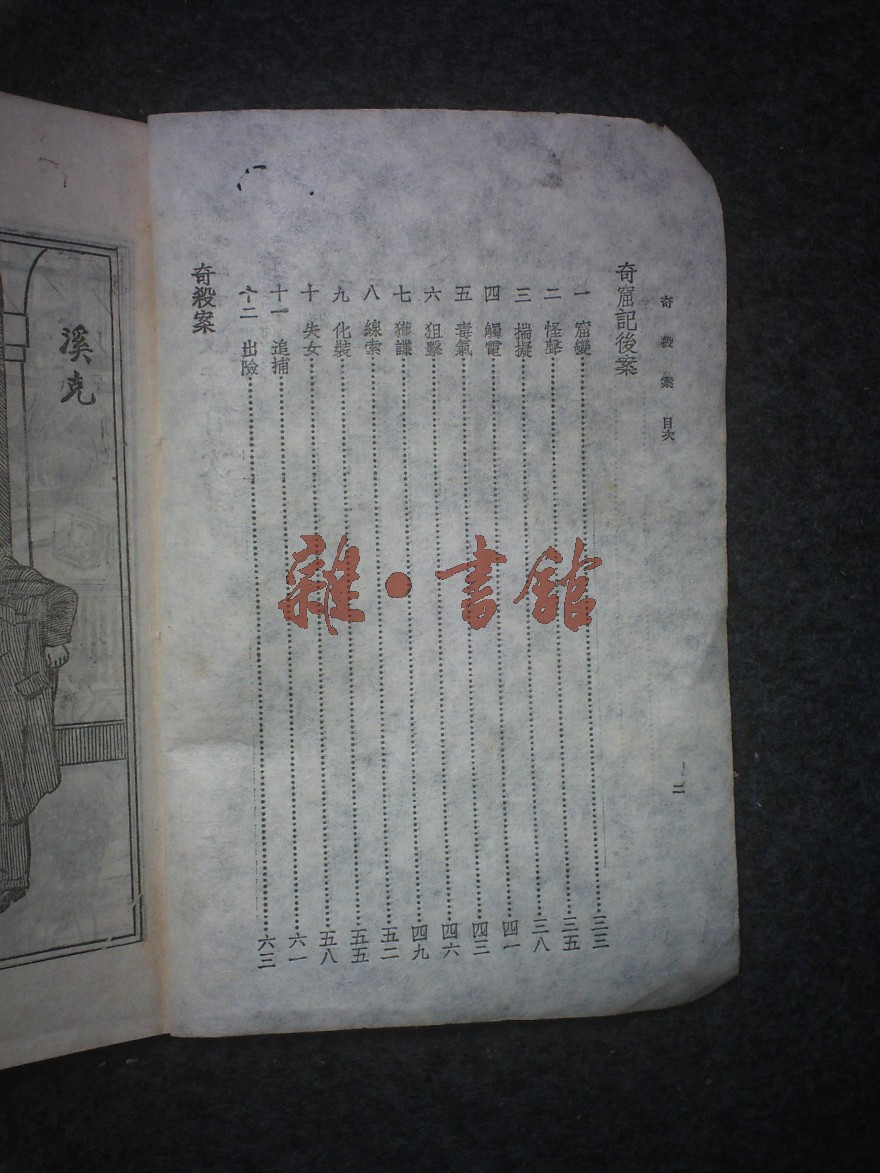 奇殺案 目次
二
奇窟記後案
一 窟變 三三
二 怪聲 三五
三 揣擬 三八
四 觸電 四一
五 毒氣 四三
六 狙擊 四六
七 獲諜 四九
八 線索 五二
九 化裝 五五
十 失女 五八
十一 追捕 六一
十二 出險 六三
奇殺案
溪克
雜·書館